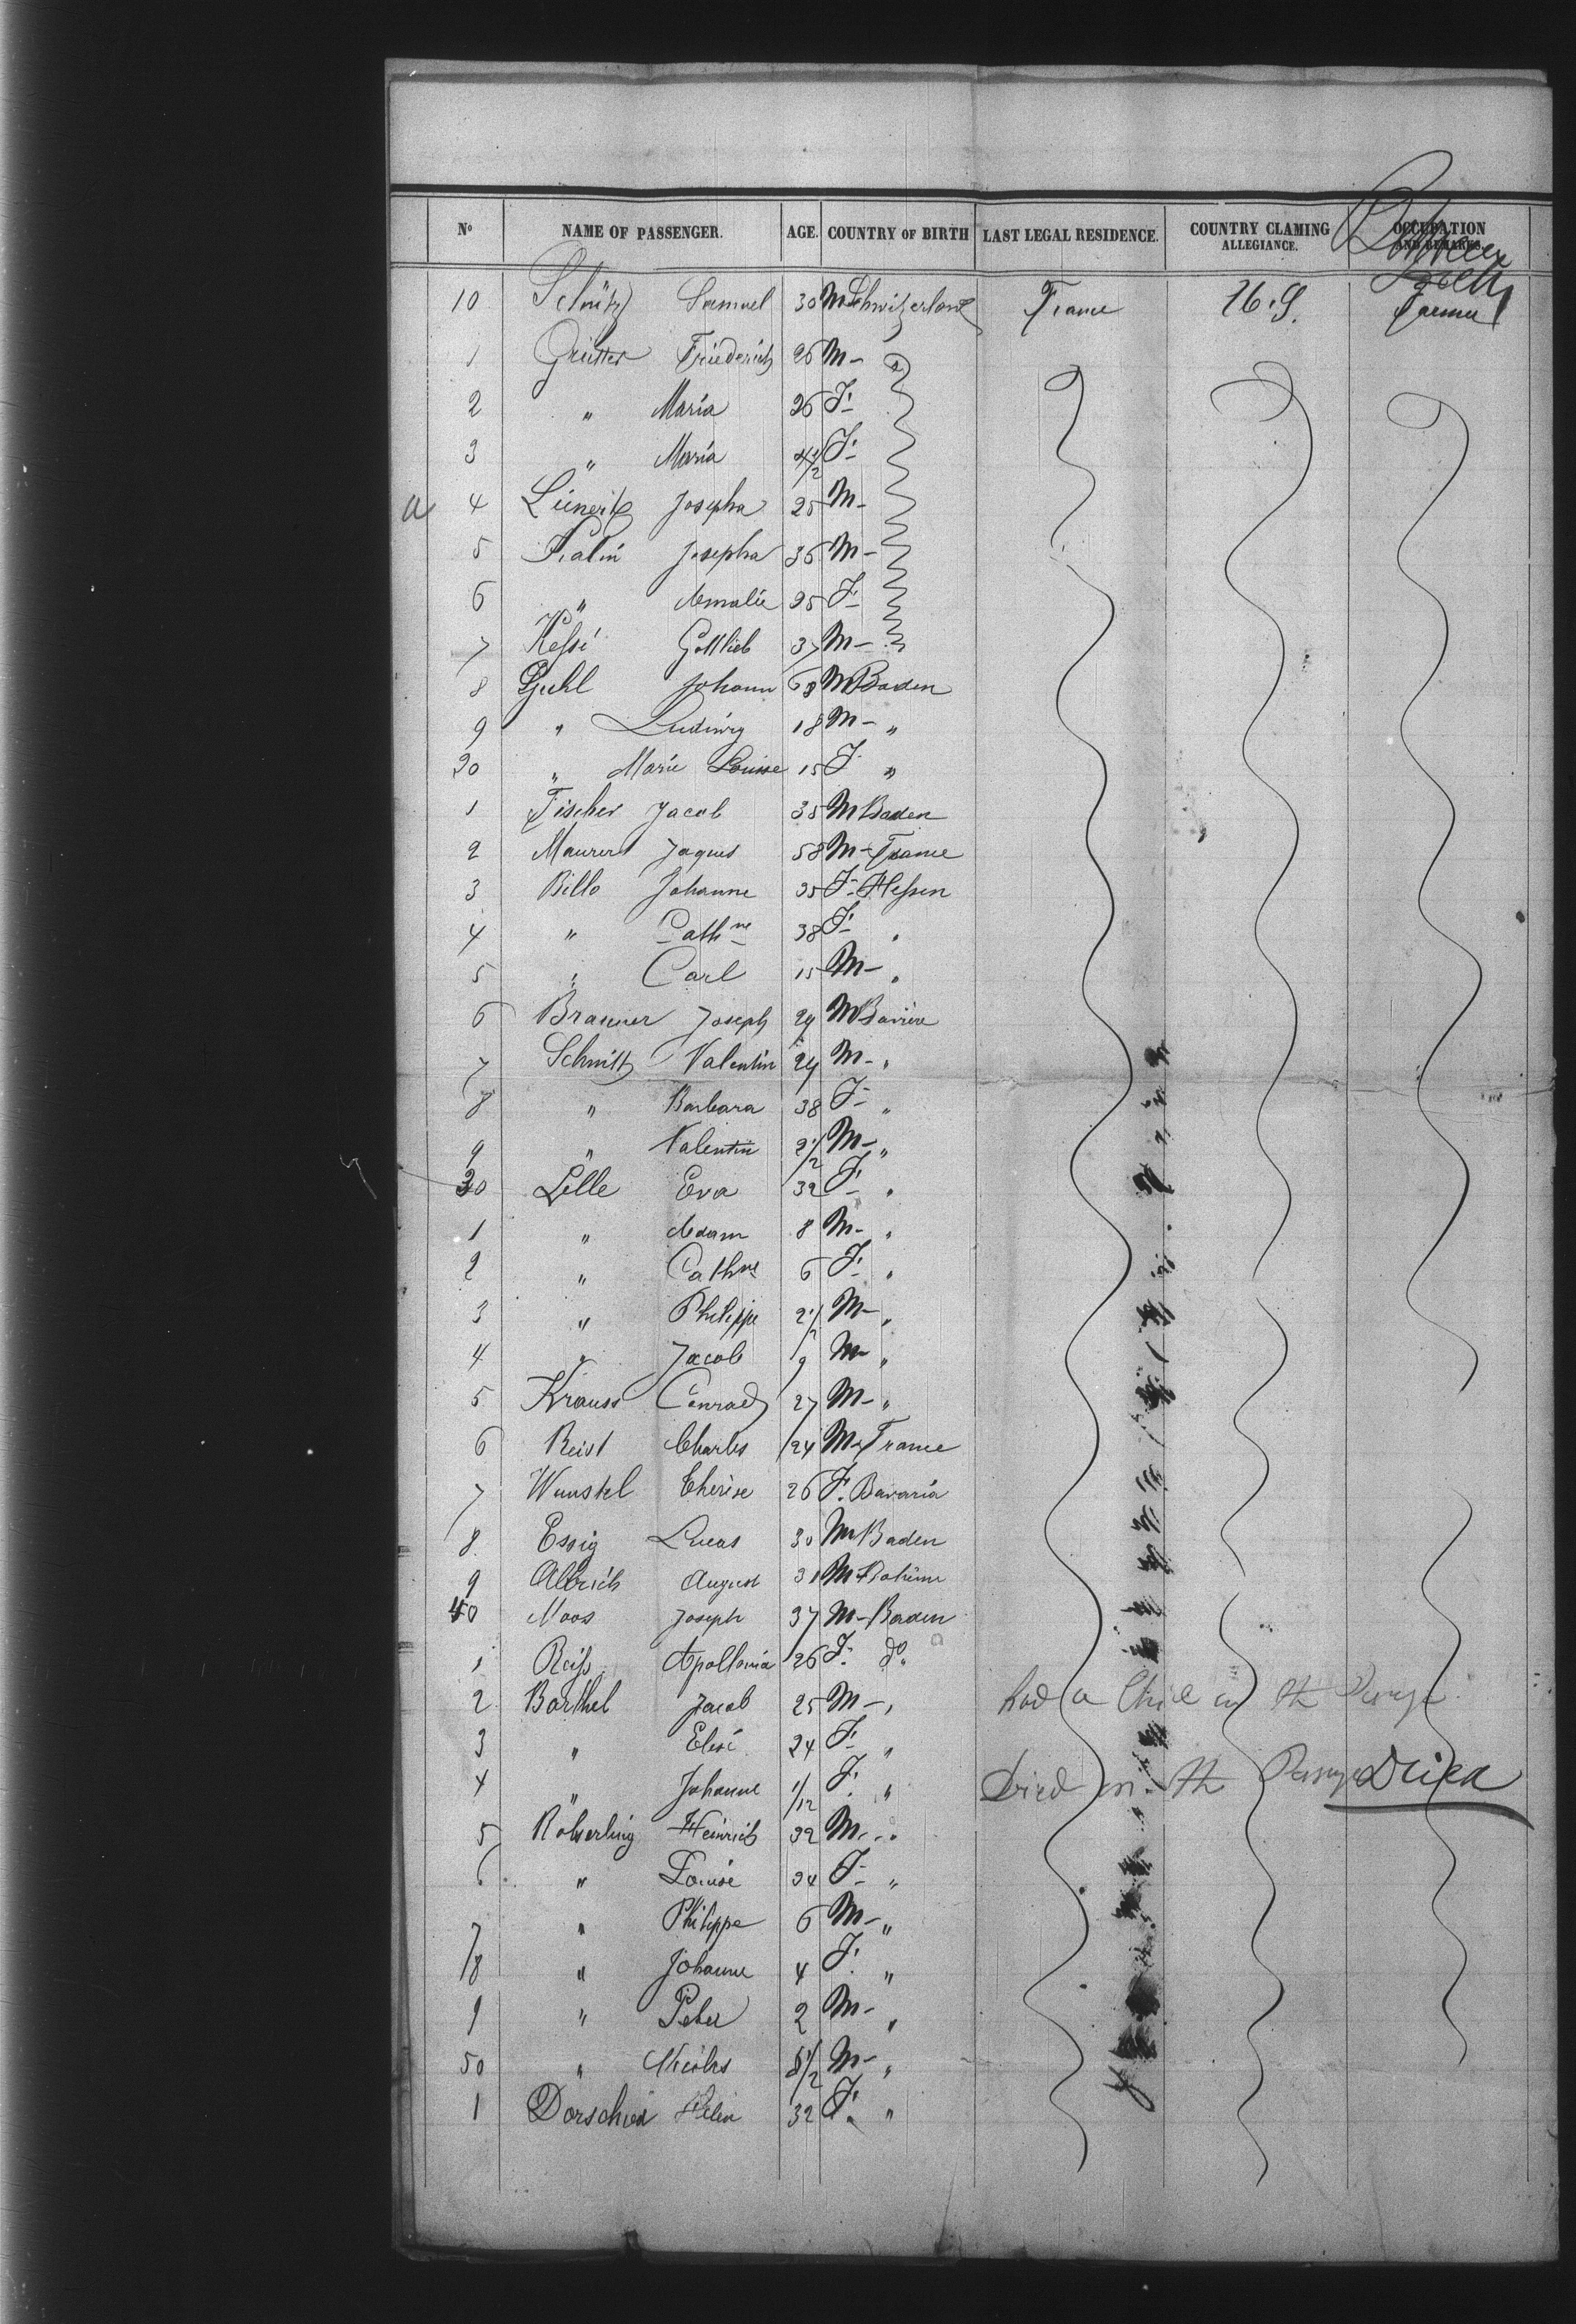 Nº NAME OF PASSENGER. AGE. COUNTRY OF BIRTH LAST LEGAL RESIDENCE. COUNTRY CLAMING ALLEGIANCE. OCCUPATION AND REMARKS.
10 Schütz Samuel 30 M Schwitzerland France U.S. Farmer
1 Grütter Friederich 26 M -
2 " Maria 26 F -
3 " Maria 4 1/2 F -
a 4 Josepha 25 M -
5 Josepha 36 M -
6 " Amalie 25 F -
7 Keßi Gottlieb 37 M -
8 Guhl Johann 68 M Baden
9 " Ludwig 18 M - "
20 " Marie Louise 15 F "
1 Fischer Jacob 35 M Baden
2 Maurer Jaques 58 M - France
3 Billo Johanne 35 F - Heßen
4 " Cathne 38 F - "
5 " Carl 15 M - "
6 Branner Joseph 29 M Bavière
7 Schmitt Valentin 29 M - "
8 " Barbara 38 F - "
9 " Valentin 2 1/2 M - "
30 Lelle Eva 32 F - "
1 " Adam 8 M - "
2 " Cathne 6 F - "
3 " Philippe 2 1/2 M - "
4 " Jacob M "
5 Krauss Conrad 27 M - "
6 Reist Charles 24 M - France
7 Wunstel Thérèse 26 F. Bavaria
8 Essig Lucas 30 M Baden
9 Albrich August 31 M Bohême
40 Moos Joseph 37 M - Baden
1 Reiß Apollonia 26 F. do.
2 Barthel Jacob 25 M - " had a Child on th Passage
3 " Elise 24 F - "
4 " Johanne 1/12 F. " Died on th Passage Died
5 Heinrich 32 M - "
6 " Louise 34 F - "
7 " Philippe 6 M - "
8 " Johanne 4 F. "
9 " Peter 2 M - "
50 " Nicolas 1/2 M - "
1 32 F. "